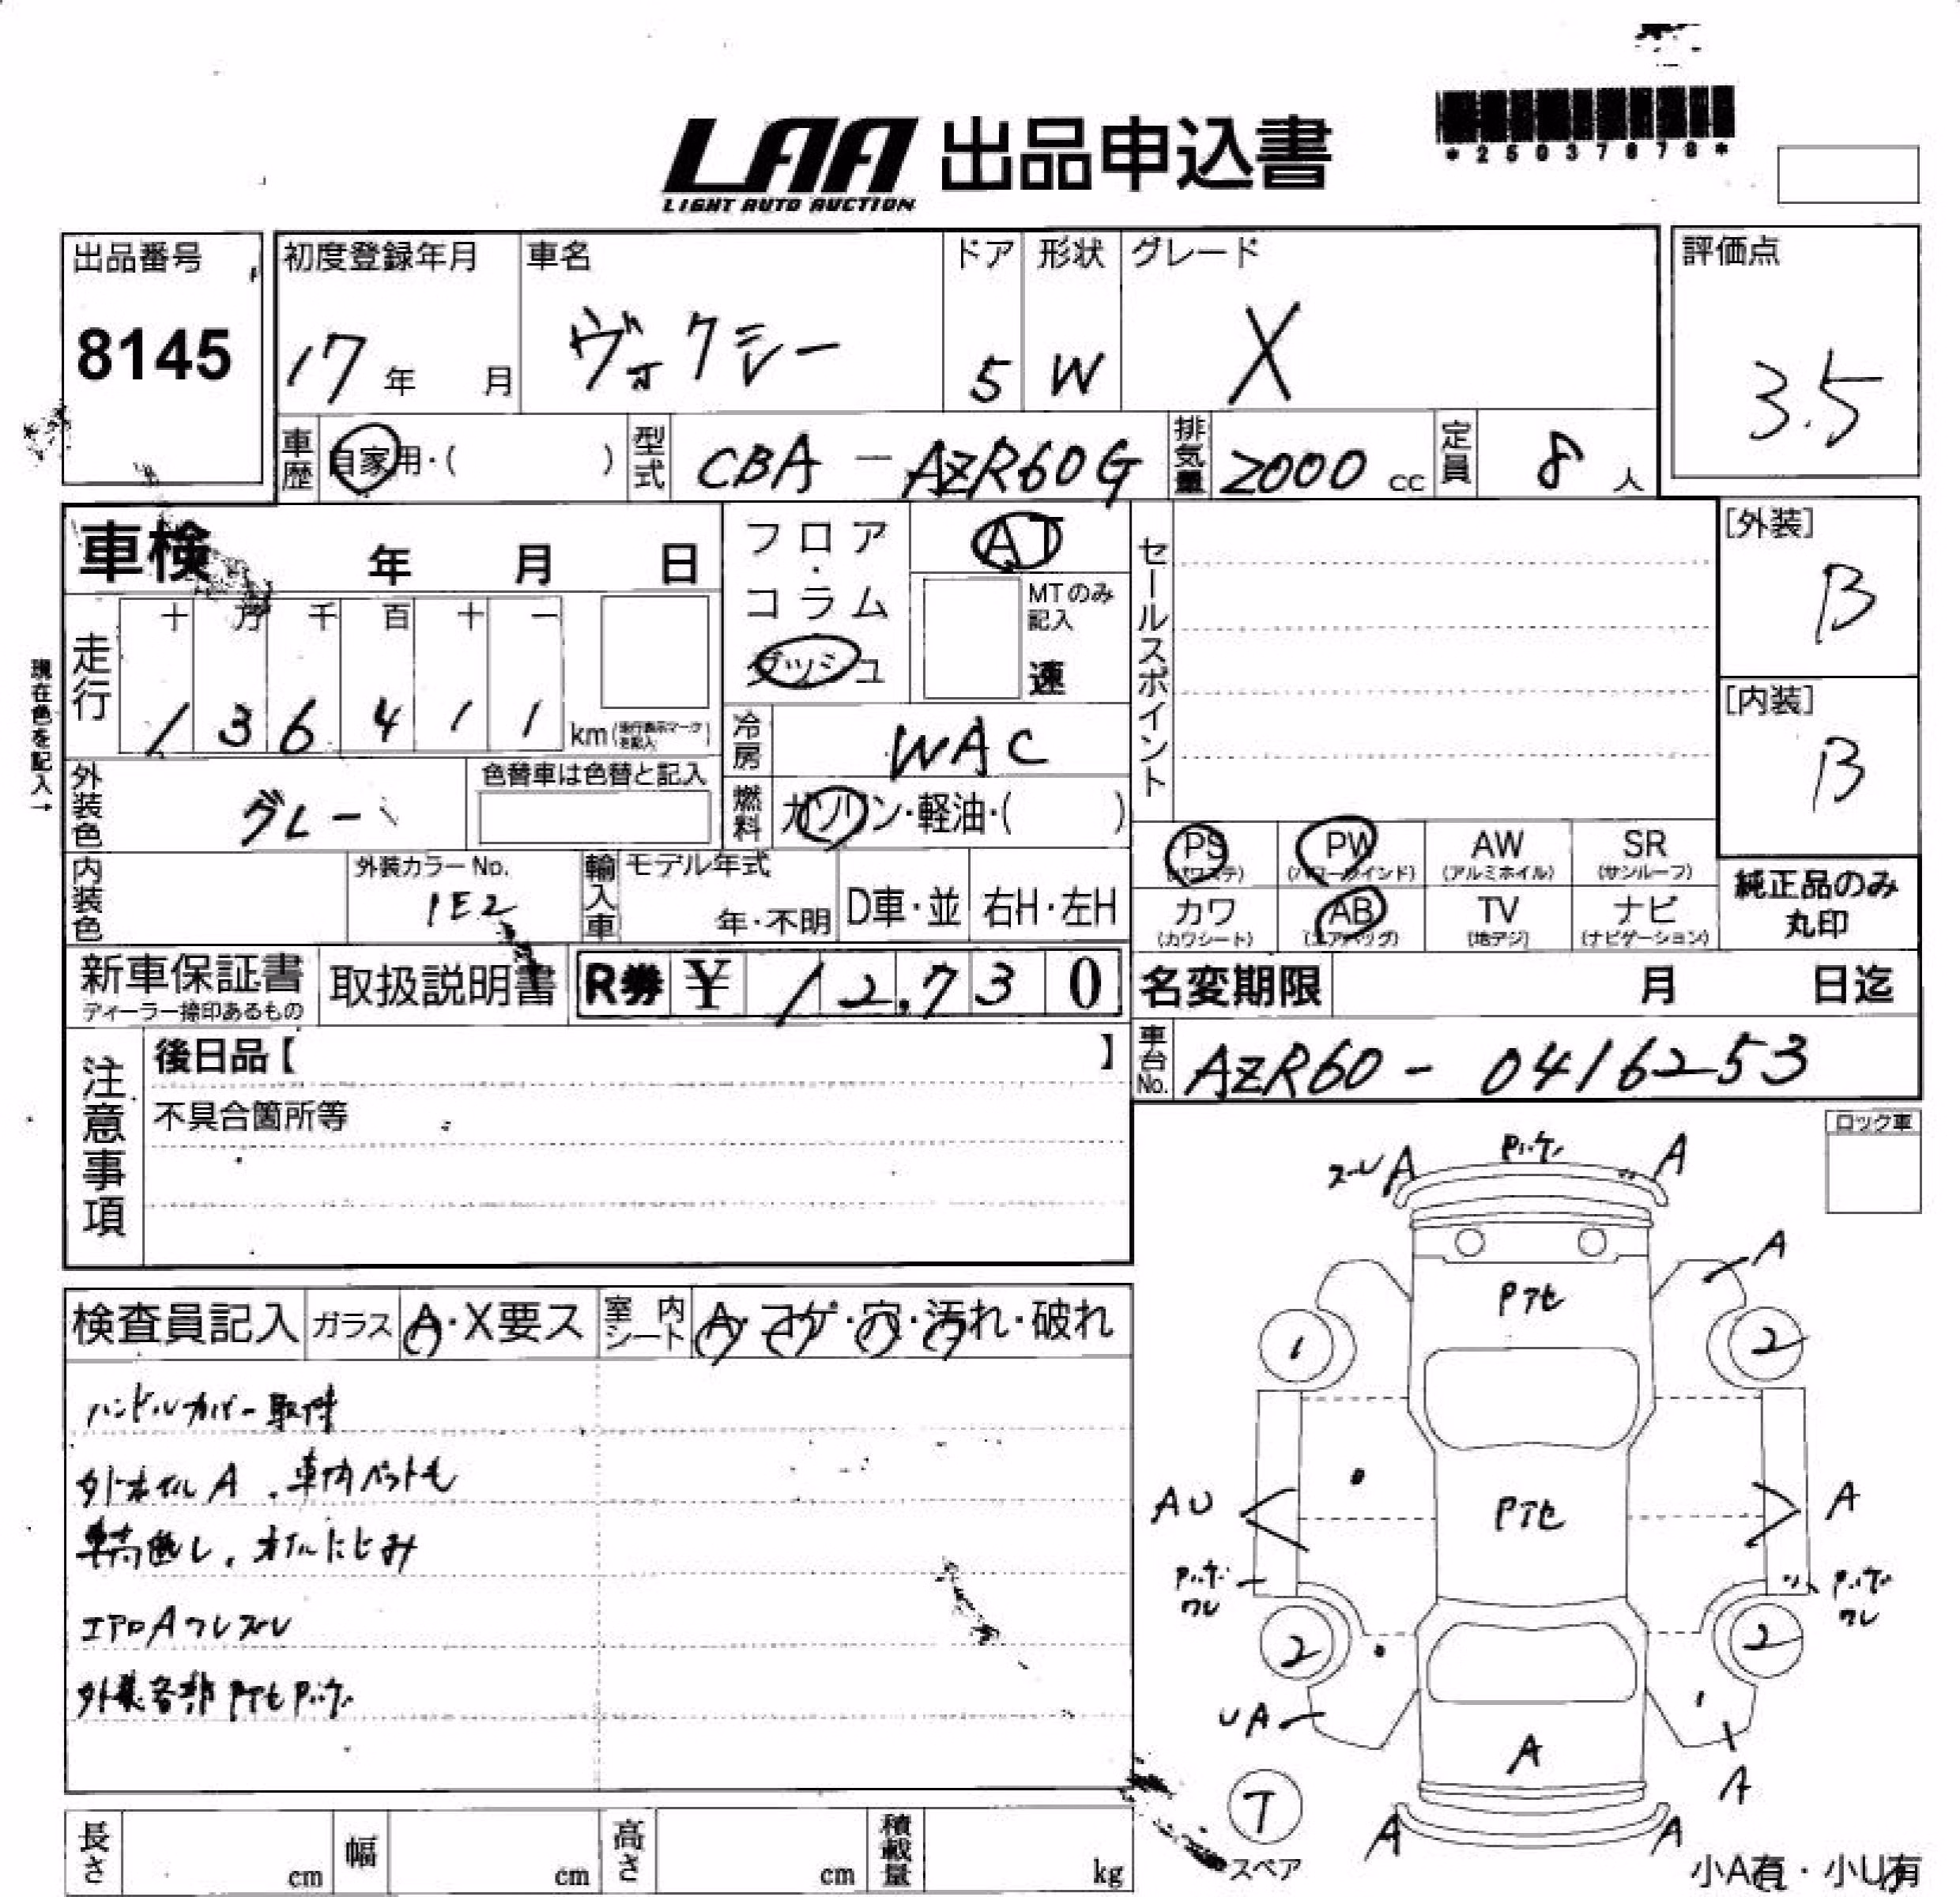 LAA 出品申込書
LIGHT AUTO AUCTION
*25037678*
出品番号
8145
初度登録年月
17年 月
車名
ヴォクシー
ドア
5
形状
W
グレード
X
評価点
3.5
車歴 自家用・( )
型式 CBA - AZR60G
排気量 2000 cc
定員 8 人
車検 年 月 日
フロア・コラム
ダッシュ
AT
MTのみ記入
速
セールスポイント
[外装]
B
[内装]
B
現在色を記入→
走行
十 万 千 百 十 一
1 3 6 4 1 1 km (走行表示マークを記入)
冷房 WAC
燃料 ガソリン・軽油・( )
外装色 グレー
色替車は色替と記入
内装色
外装カラーNo.
1E2
輸入車
モデル年式
年・不明
D車・並
右H・左H
PS (パワステ)
PW (パワーウインド)
AW (アルミホイル)
SR (サンルーフ)
カワ (カワシート)
AB (エアバッグ)
TV (地デジ)
ナビ (ナビゲーション)
純正品のみ
丸印
新車保証書
ディーラー捺印あるもの
取扱説明書
R券 ¥ 12,730
名変期限 月 日迄
車台No. AZR60 - 0416253
注意事項
後日品【 】
不具合箇所等
ロック車
検査員記入
ガラス A・X要ス
室内シート A・コゲ・穴・汚れ・破れ
ハンドルカバー取付
外ホイルA . 車内ペット毛
車高 . オイルにじみ
エアロAワレズレ
外装各部PTセPハゲ
ズレA
Pハゲ
A
A
Pアセ
1
2
AU
Pアセ
A
Pハゲ
ワレ
Pハゲ
ワレ
2
2
UA
A
A
T
スペア
A
A
小A有・小U有
長さ cm
幅 cm
高さ cm
積載量 kg